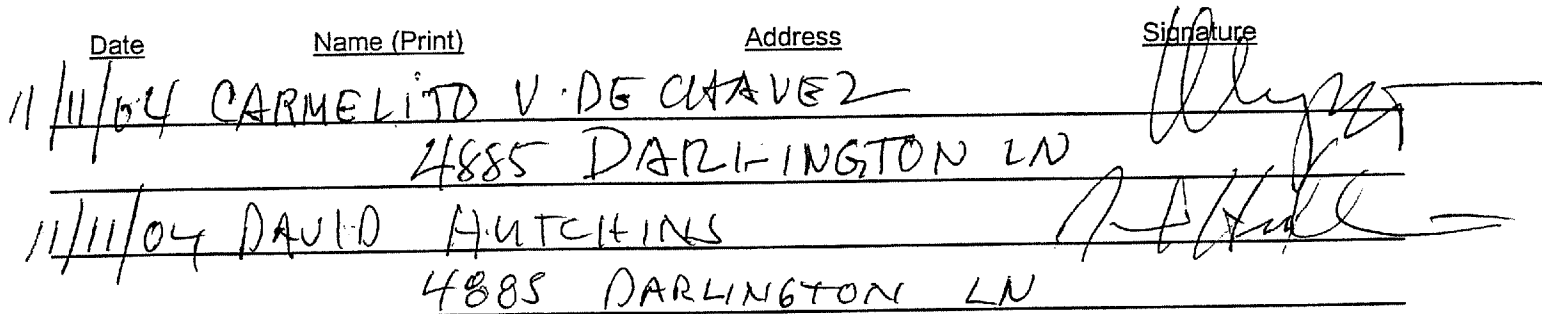 Date Name (Print) Address Signature
11/11/04 CARMELITO V. DE CHAVEZ
4885 DARLINGTON LN
11/11/04 DAVID HUTCHINS
4885 DARLINGTON LN